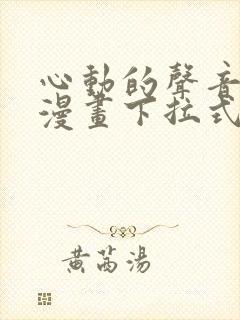 心動的聲音
漫畫下拉式
黃芮湯